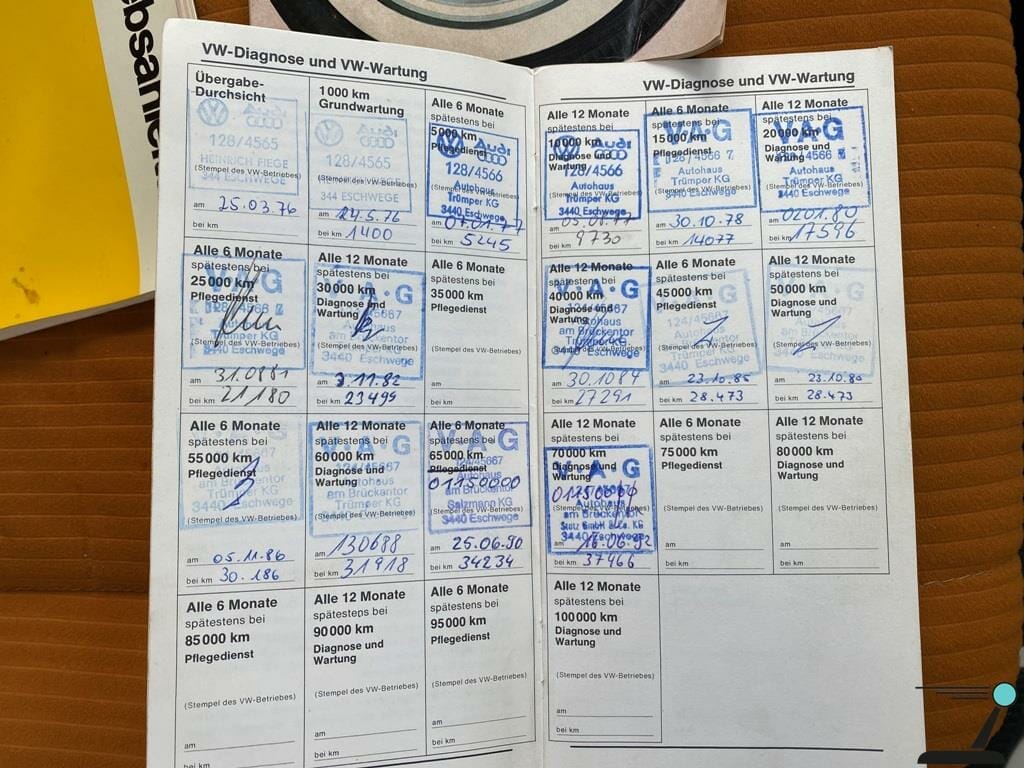 VW-Diagnose und VW-Wartung
Übergabe-
Durchsicht
Audi
128/4565
HEINRICH FIEGE
(Stempel des VW-Betriebes)
344 ESCHWEGE
am 25.03.76
bei km
1000 km
Grundwartung
Audi
128/4565
(Stempel des VW-Betriebes)
344 ESCHWEGE
am 24.5.76
bei km 1400
Alle 6 Monate
spätestens bei
5000 km
Pflegedienst
Audi
128/4566
(Stempel des VW-Betriebes)
Autohaus
Trümper KG
3440 Eschwege
am 07.01.77
bei km 5245
Alle 6 Monate
spätestens bei
25000 km
Pflegedienst
V·A·G
128/4566 7
Autohaus
Trümper KG
(Stempel des VW-Betriebes)
3440 Eschwege
am 31.0881
bei km 21180
Alle 12 Monate
spätestens bei
30000 km
Diagnose und
Wartung
V·A·G
124/45667
Autohaus
am Brückentor
Trümper KG
(Stempel des VW-Betriebes)
3440 Eschwege
am 3.11.82
bei km 23499
Alle 6 Monate
spätestens bei
35000 km
Pflegedienst
(Stempel des VW-Betriebes)
am
bei km
Alle 6 Monate
spätestens bei
55000 km
Pflegedienst
(Stempel des VW-Betriebes)
am 05.11.86
bei km 30.186
Alle 12 Monate
spätestens bei
60000 km
Diagnose und
Wartung
V·A·G
124/45667
Autohaus
am Brückentor
Trümper KG
(Stempel des VW-Betriebes)
3440 Eschwege
am 130688
bei km 31918
Alle 6 Monate
spätestens bei
65000 km
Pflegedienst
V·A·G
124/45667
01150000
Autohaus
am Brückentor
Salzmann KG
(Stempel des VW-Betriebes)
3440 Eschwege
am 25.06.90
bei km 34234
Alle 6 Monate
spätestens bei
85000 km
Pflegedienst
(Stempel des VW-Betriebes)
am
bei km
Alle 12 Monate
spätestens bei
90000 km
Diagnose und
Wartung
(Stempel des VW-Betriebes)
am
bei km
Alle 6 Monate
spätestens bei
95000 km
Pflegedienst
(Stempel des VW-Betriebes)
am
bei km
VW-Diagnose und VW-Wartung
Alle 12 Monate
spätestens bei
10000 km
Diagnose und
Wartung
Audi
128/4566
(Stempel des VW-Betriebes)
Autohaus
Trümper KG
3440 Eschwege
am
bei km 9730
Alle 6 Monate
spätestens bei
15000 km
Pflegedienst
V·A·G
128/4566 7
Autohaus
Trümper KG
(Stempel des VW-Betriebes)
3440 Eschwege
am 30.10.78
bei km 14077
Alle 12 Monate
spätestens bei
20000 km
Diagnose und
Wartung
V·A·G
128/4566
Autohaus
Trümper KG
(Stempel des VW-Betriebes)
3440 Eschwege
am 0201.80
bei km 17596
Alle 12 Monate
spätestens bei
40000 km
Diagnose und
Wartung
V·A·G
124/45667
Autohaus
am Brückentor
Trümper KG
(Stempel des VW-Betriebes)
3440 Eschwege
am 30.1084
bei km 27291
Alle 6 Monate
spätestens bei
45000 km
Pflegedienst
(Stempel des VW-Betriebes)
am 23.10.85
bei km 28.473
Alle 12 Monate
spätestens bei
50000 km
Diagnose und
Wartung
(Stempel des VW-Betriebes)
am 23.10.85
bei km 28.473
Alle 12 Monate
spätestens bei
70000 km
Diagnose und
Wartung
V·A·G
Autohaus
am Brückentor
(Stempel des VW-Betriebes)
3440 Eschwege
am 16.06.92
bei km 37466
Alle 6 Monate
spätestens bei
75000 km
Pflegedienst
(Stempel des VW-Betriebes)
am
bei km
Alle 12 Monate
spätestens bei
80000 km
Diagnose und
Wartung
(Stempel des VW-Betriebes)
am
bei km
Alle 12 Monate
spätestens bei
100000 km
Diagnose und
Wartung
(Stempel des VW-Betriebes)
am
bei km